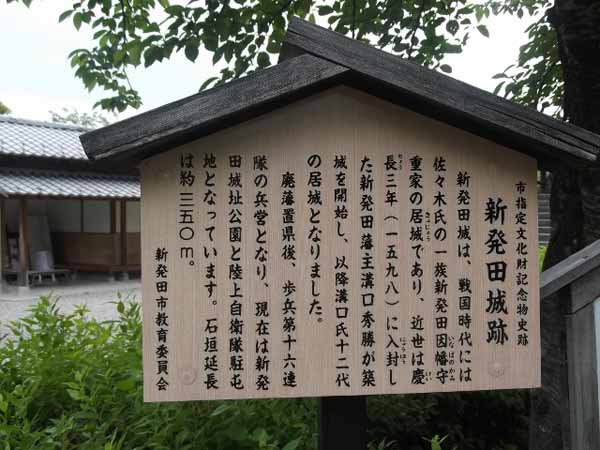 市指定文化財記念物史跡
新発田城跡
新発田城は、戦国時代には
佐々木氏の一族新発田因幡守
いなばのかみ
重家の居城であり、近世は慶
きょじょう
けい
長三年（一五九八）に入封し
ちょう
にゅうほう
た新発田藩主溝口秀勝が築
城を開始し、以降溝口氏十二代
の居城となりました。
廃藩置県後、歩兵第十六連
隊の兵営となり、現在は新発
田城址公園と陸上自衛隊駐屯
地となっています。石垣延長
は約三五〇ｍ。
新発田市教育委員会